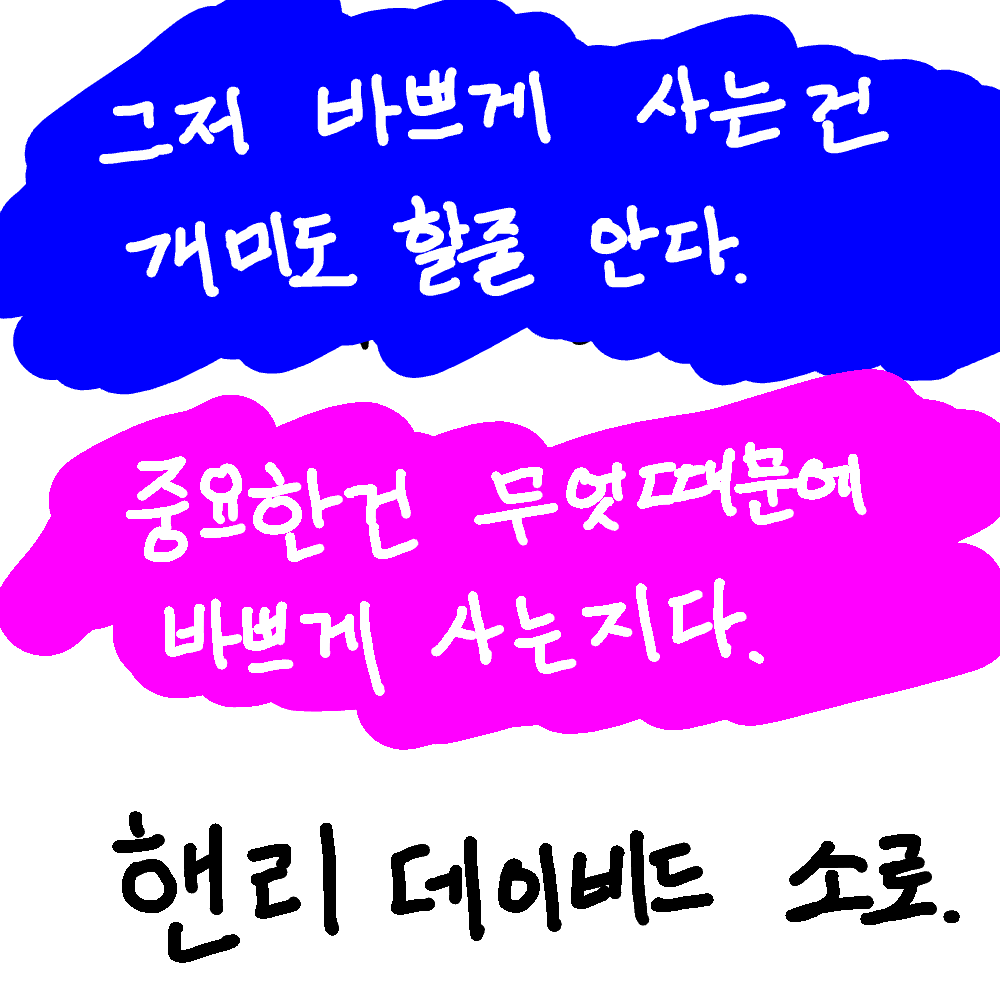 그저 바쁘게 사는건
개미도 할줄 안다.
중요한건 무엇때문에
바쁘게 사는지다.
핸리 데이비드 소로.